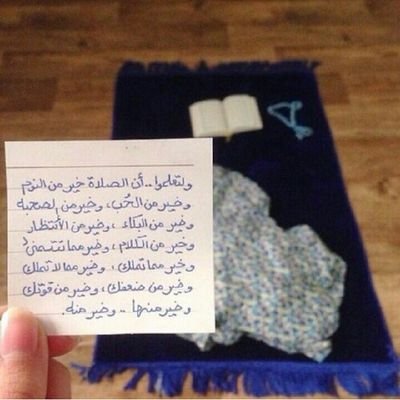 ولتعلموا .. أن الصلاة خير من النوم
وخير من الحُب، وخير من الصحبه
وخير من البكاء، وخير من الأنتظار
وخير من الكلام، وخير مما تتمنىٰ
وخير مما تملك، وخير مما لا تملك
وخير من ضعفك، وخير من قوتك
وخير منها .. وخير منه.